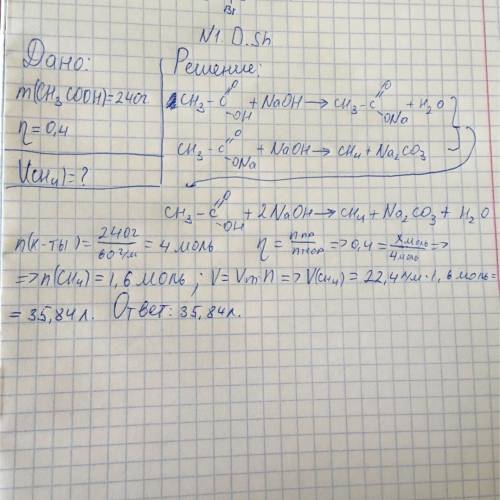 Br
N1. D. Sh
Дано:
Решение:
m(CH₃COOH)=240г.
CH₃-C(=O)-OH + NaOH → CH₃-C(=O)-ONa + H₂O
η=0,4
CH₃-C(=O)-ONa + NaOH → CH₄ + Na₂CO₃
V(CH₄)=?
CH₃-C(=O)-OH + 2NaOH → CH₄ + Na₂CO₃ + H₂O
n(к-ты)= 240г / 60г/м = 4 моль η = n пр / n теор => 0,4 = X моль / 4 моль =>
=> n(CH₄)=1,6 моль ; V=Vm·n => V(CH₄) = 22,4л/м·1,6 моль=
= 35,84 л. Ответ: 35,84л.